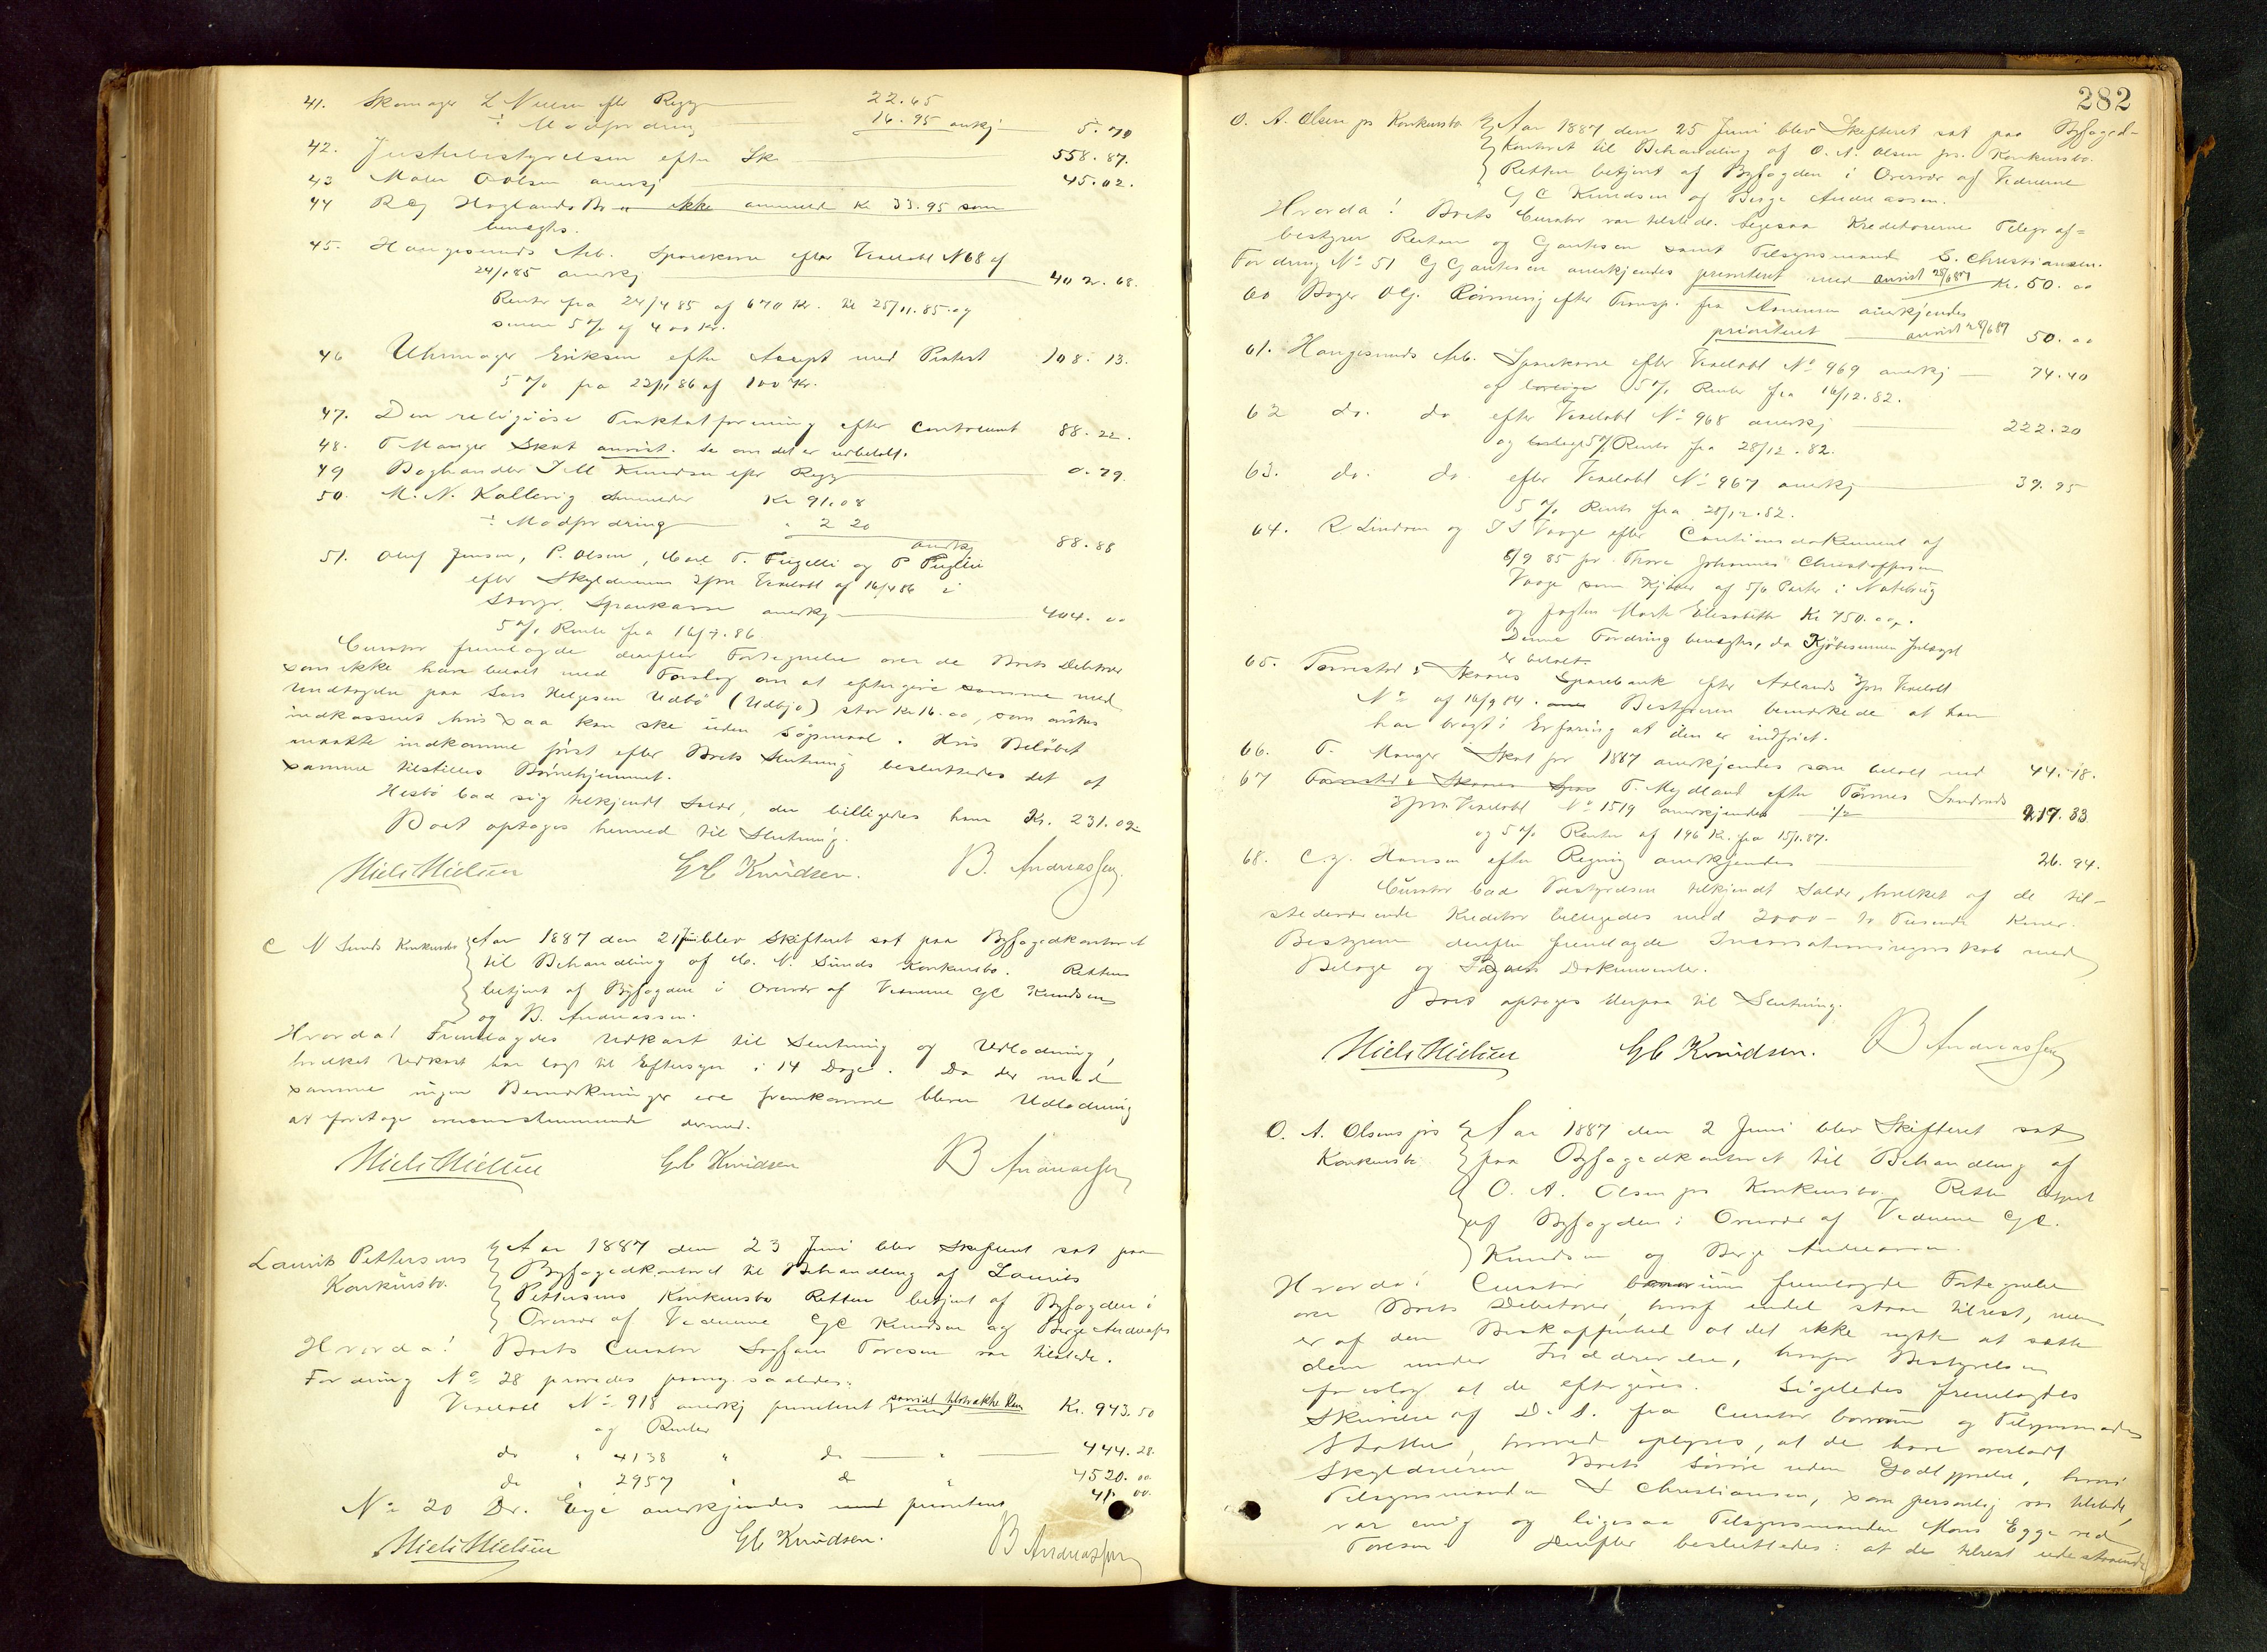 41. Skomager L Nielsen efter Regg 22.65
÷ Modfordring 16.95 anerkj 5.70
42. Justisbestyrelsen efter Sk 558.87.
43 Maler Oolsen anerkj 45.02.
44 R Cj Hoglands Bo ikke anmeldt Kr 33.95 som
benægtes.
45. Haugesunds Arb. Sparekasse efter Vexelobl N 68 af
24/1 85 anerkj 402.68.
Renter fra 24/4 85 af 670 Kr. til 25/11.85. og
senere 5% af 400 Kr.
46 Uhrmager Eriksen efter Accept med Protest 108.13.
5% fra 22/11 86 af 100 Kr.
47. Den religiøse Traktatforening efter Contocurant 88.22.
48. T. Manger Skat anvist. se om det er udbetalt.
49 Boghandler J M Knudsen efter Regg 0.79.
50. M. N. Kallevig anmelder Kr 91.08
÷ Modfordring " 2 20
anerkj 88.88
51. Oluf Jensen, P. Olsen, Carl T. Fugelli og P Fuglli
efter Skyldnerens Vexelobl af 16/4 86 i
Sparekasse anerkj 404.00
5% Rente fra 16/7.86.
Curator fremlagde derefter Fortegnelse over de Boets Debitorer
som ikke have betalt med Forslag om at eftergive samme med
Undtagelse paa Lars Helgesen Udbø (Udbjo) stor Kr 16.00, som ønskes
indkasseret hvis saa kan ske uden Søgsmaal. Hvis Beløbet
maatte indkomme først efter Boets Slutning besluttedes det at
samme tilstilles Børnehjemmet.
Hesbø bad sig tilkjendt Salær, der billigedes ham Kr. 231.02
Boet optoges hermed til Slutning.
Niels Nielsen GC Knudsen. B. Andreassen
C N Sunds Konkursbo Aar 1887 den 21 Juni blev Skifteret sat paa Byfogedkontoret
til Behandling af C. N. Sunds Konkursbo. Retten
betjent af Byfogden i Overvær af Vidnerne GC Knudsen
og B. Andreassen.
Hvorda! Fremlagdes Udkast til Slutning og Udlodning,
hvilket Udkast har lagt til Eftersyn i 14 Dage. Da der mod
samme ingen Bemærkninger ere fremkomne bliver Udlodning
at foretage overensstemmende dermed.
Niels Nielsen GC Knudsen B Andreassen
Laurits Pettersens Konkursbo. Aar 1887 den 23 Juni blev Skifteret sat paa
Byfogedkontoret til Behandling af Laurits
Pettersens Konkursbo Retten betjent af Byfogden i
Overvær af Vidnerne GC Knudsen og Berge Andreassen
Hvorda! Boets Curator Toresen var tilstede.
Fordring No 28 prøvedes saaledes:
Vexelobl No 918 anerkj prioriteret saavidt tilstrække kan Kr. 943.50
og Renter
do " 4138 " do " 444.28.
do " 2957 " do " 4520.00.
No 20 Dr. Eyé anerkjendes prioriteret 41.00.
Niels Nielsen GC Knudsen. B Andreassen
282
O. A. Olsen jrs Konkursbo Aar 1887 den 25 Juni blev Skifteret sat paa Byfoged-
Kontoret til Behandling af O. A. Olsen jrs. Konkursbo.
Retten betjent af Byfogden i Overvær af Vidnerne
GC Knudsen og Berge Andreassen.
Hvorda! Boets Curator var tilstede. ligesaa Kreditorerne Telegraf-
bestyrer Rertan og Gjantesen samt Tilsynsmand S. Christiansen.
Fordring No 51 Cj Gjantesen anerkjendes prioriteret med anvist 28/6 87 Kr. 50.00
60 Bager O Cj. Rønnevig efter Transp. fra anerkjendes
prioriteret anvist 28/6 87 50.00
61. Haugesunds Arb. Sparekasse efter Vexelobl No 969 anerkj 74.40
og 5% Renter fra 16/12.82.
62 do. do efter Vexelobl No 968 anerkj 222.20
og 5% Renter fra 28/12.82.
63. do. do. efter Vexelobl No 967 anerkj 39.95
5% Rente fra 28/12.82.
64. R Lindøen og J S Vaage efter Cautionsdokument af
8/9 85 for Thore Johannes Christoffersen
Vaage som Kjøber af 5/6 Parter i Notebrug
og Jagten Marte Elisabeth Kr 750.00.
Denne Fordring benægtes, da Kjøbesummen
er betalt.
65. Tørrestad & Skaares Sparebank efter Vexelobl
No af 16/9 84. Bestyreren bemærkede at han
har bragt i Erfaring at den er indfriet.
66. T. Manger Skat for 1887 anerkjendes som betalt med 44.18.
67 T. Mydland efter Tønnes
Vexelobl No 1519 anerkjendes 217.83
og 5% Renter af 196 Kr. fra 15/1.87.
68. C. J. Hansen efter Regning anerkjendes 26.94.
Curator bad Bestyrelsen tilkjendt Salær, hvilket af de til-
stedeværende Kreditor billigedes med 2000 – to Tusinde Kroner.
Bestyreren derefter fremlagde med
Bilage og Dokumenter.
Boet optoges derpaa til Slutning.
Niels Nielsen GC Knudsen. B Andreassen
O. A. Olsens jrs Konkursbo. Aar 1887 den 2 Juni blev Skifteret sat
paa Byfogedkontoret til Behandling af
O. A. Olsen jrs Konkursbo. Retten betjent
af Byfogden i Overvær af Vidnerne GC.
Knudsen og Berge Andreassen.
Hvorda! Curator fremlagde Fortegnelse
over Boets Debitorer, hvoraf endel staar tilrest, men
er af den Beskaffenhed at det ikke nytter at sætte
dem under Inddrivelse, hvorfor Bestyrelsen
foreslog at de eftergives. Ligeledes fremlagdes
Skrivelse af D. D. fra Curator og Tilsynsmanden
hvorved oplyses, at de have overladt
Skyldneren Boets uden Godtgjørelse, hvori
Tilsynsmanden S Christiansen, som personlig var tilstede,
var enig og ligesaa Tilsynsmanden Mons Egge ved
Toresen. Derefter besluttedes: at de tilrest udestaaende